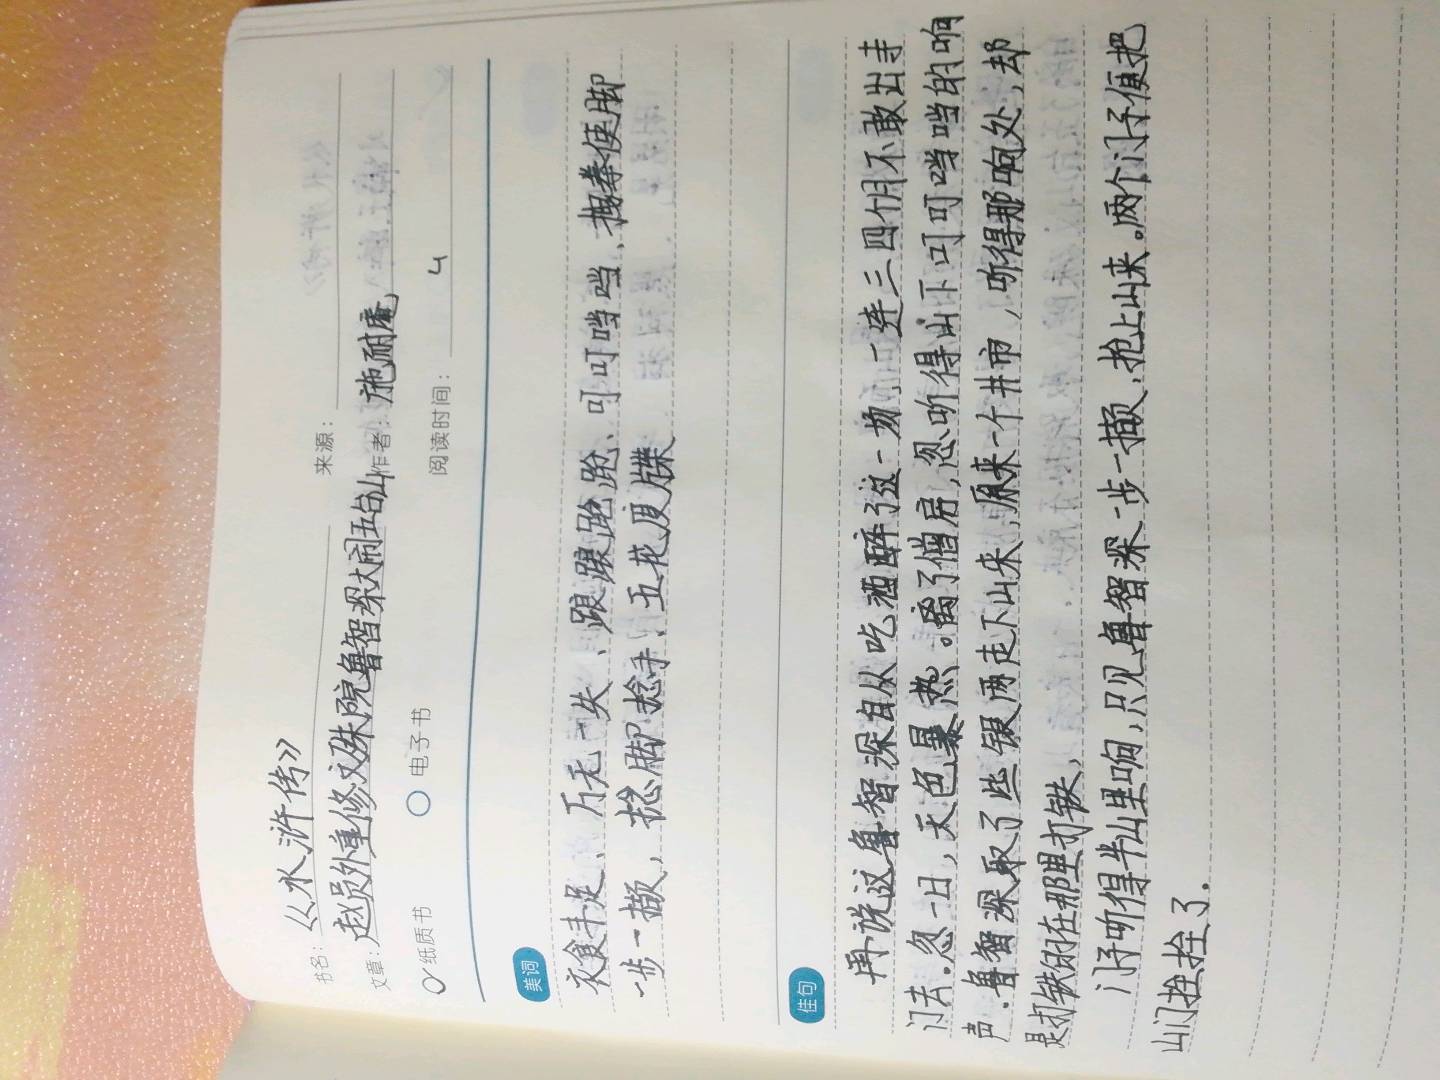 书名：《水浒传》 来源：
文章：赵员外重修文殊院鲁智深大闹五台山 作者：施耐庵
纸质书 电子书 阅读时间： 4
美词
衣食丰足、万无一失、踉踉跄跄、叮叮当当、拽拳使脚
一步一攧、捻脚捻手、五花度牒
佳句
再说这鲁智深自从吃酒醉了这一场，一连三四个月不敢出寺
门去。忽一日，天色暴热。离了僧房，忽听得山下叮叮当当的响
声。鲁智深取了些银两走下山来，原来一个井市，听得那响处，却
是打铁的在那里打铁，
门子听得半山里响，只见鲁智深一步一攧，抢上山来。两个门子便把
山门拴拴了。